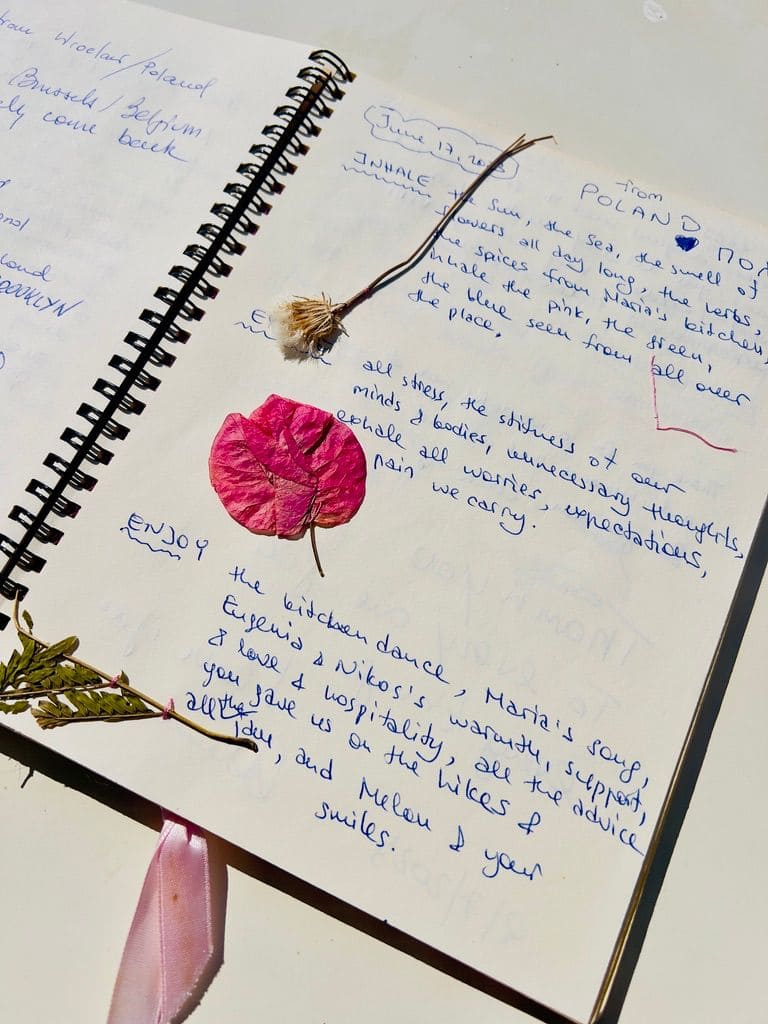 from Wrocław/Poland
Brussels/Belgium
come back
BROOKLYN
June 17, 20
from
POLAND ♥ ПОЛ
INHALE the sun, the sea, the smell of
flowers all day long, the herbs,
the spices from Maria's kitchen,
inhale the pink, the green,
the blue seen from all over
the place.
E
all stress, the stifness of our
minds & bodies, unnecessary thoughts,
exhale all worries, expectations,
pain we carry.
ENJOY
the kitchen dance, Maria's song,
Eugenia & Nikos's warmth, support,
& love & hospitality, all the advice
you gave us on the hikes &
all the jam, and Melon & your
smiles.
Thank you
To every one